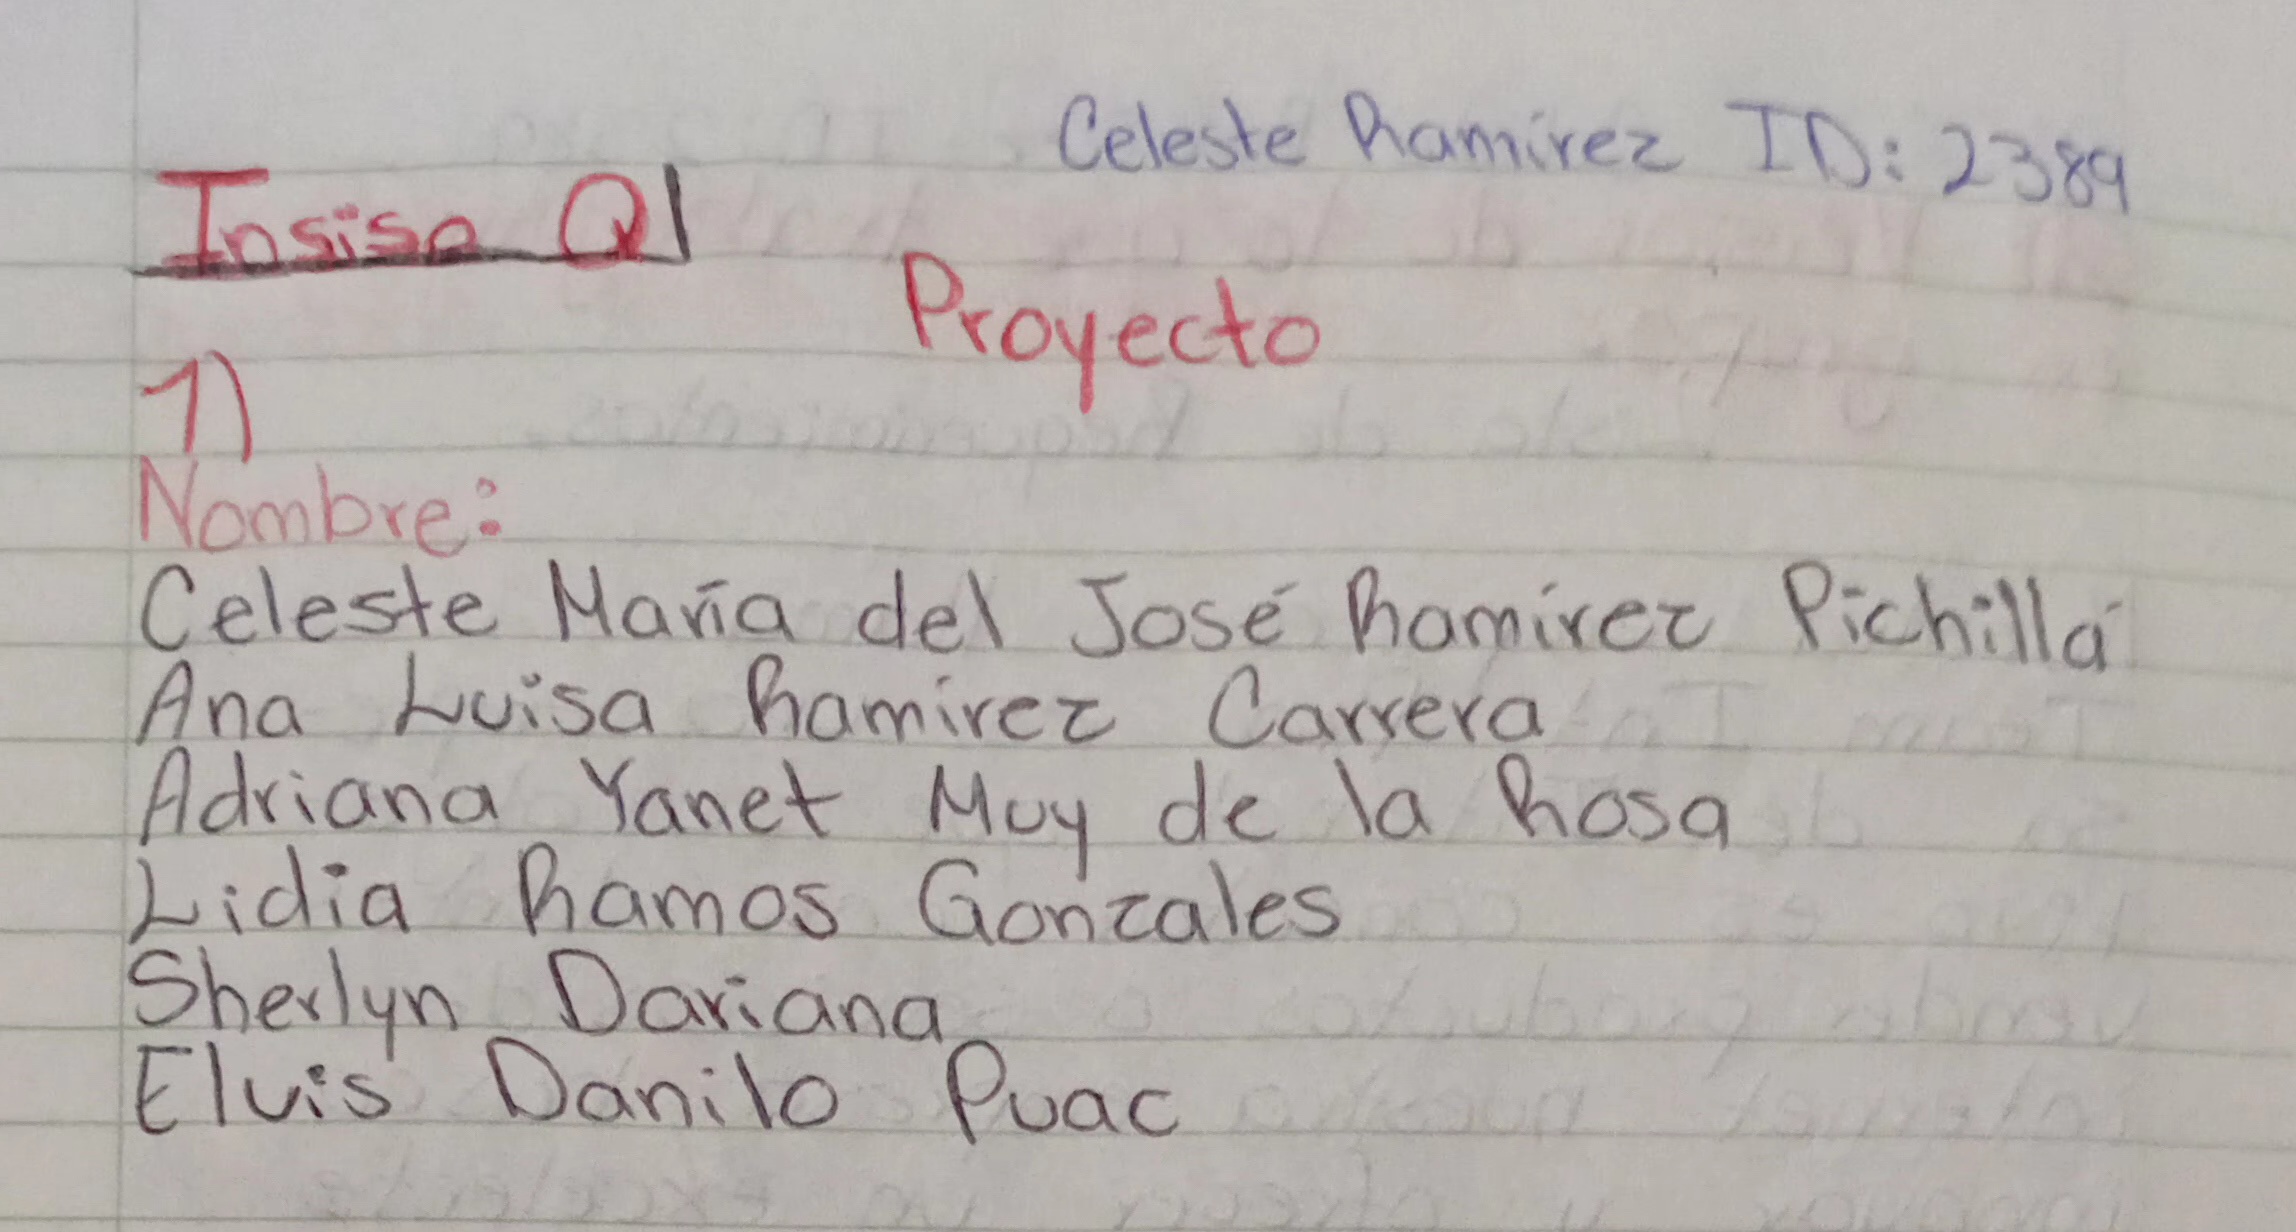 Celeste Ramirez ID: 2389
Insiso Q
Proyecto
1)
Nombre:
Celeste María del José Ramirez Pichillá
Ana Luisa Ramirez Carrera
Adriana Yanet Muy de la Rosa
Lidia Ramos Gonzales
Sherlyn Dariana
Eluis Danilo Puac